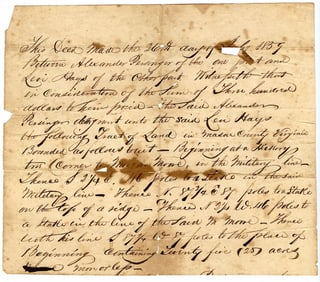 This Deed Made the 26th day of July 1859
Between Alexander Persinger of the one part and
Levi Hays of the other part Witnesseth that
in Consideration of the Sum of Three hundred
dollars to him paid - The Said Alexander
Persinger doth grant unto the Said Levi Hays
the following Tract of Land in Mason County Virginia
Bounded as follows to wit - Beginning at a Hickory
Corner Moore in the Military line
Thence S poles to a Stake in the said
Military line - Thence N. 57 poles to Stake
on the top of a ridge - Thence N W poles to
a Stake in the line of the Said Moore - Thence
with his line S W 57 poles to the place of
Beginning Containing Twenty five (25) acres
more or less -